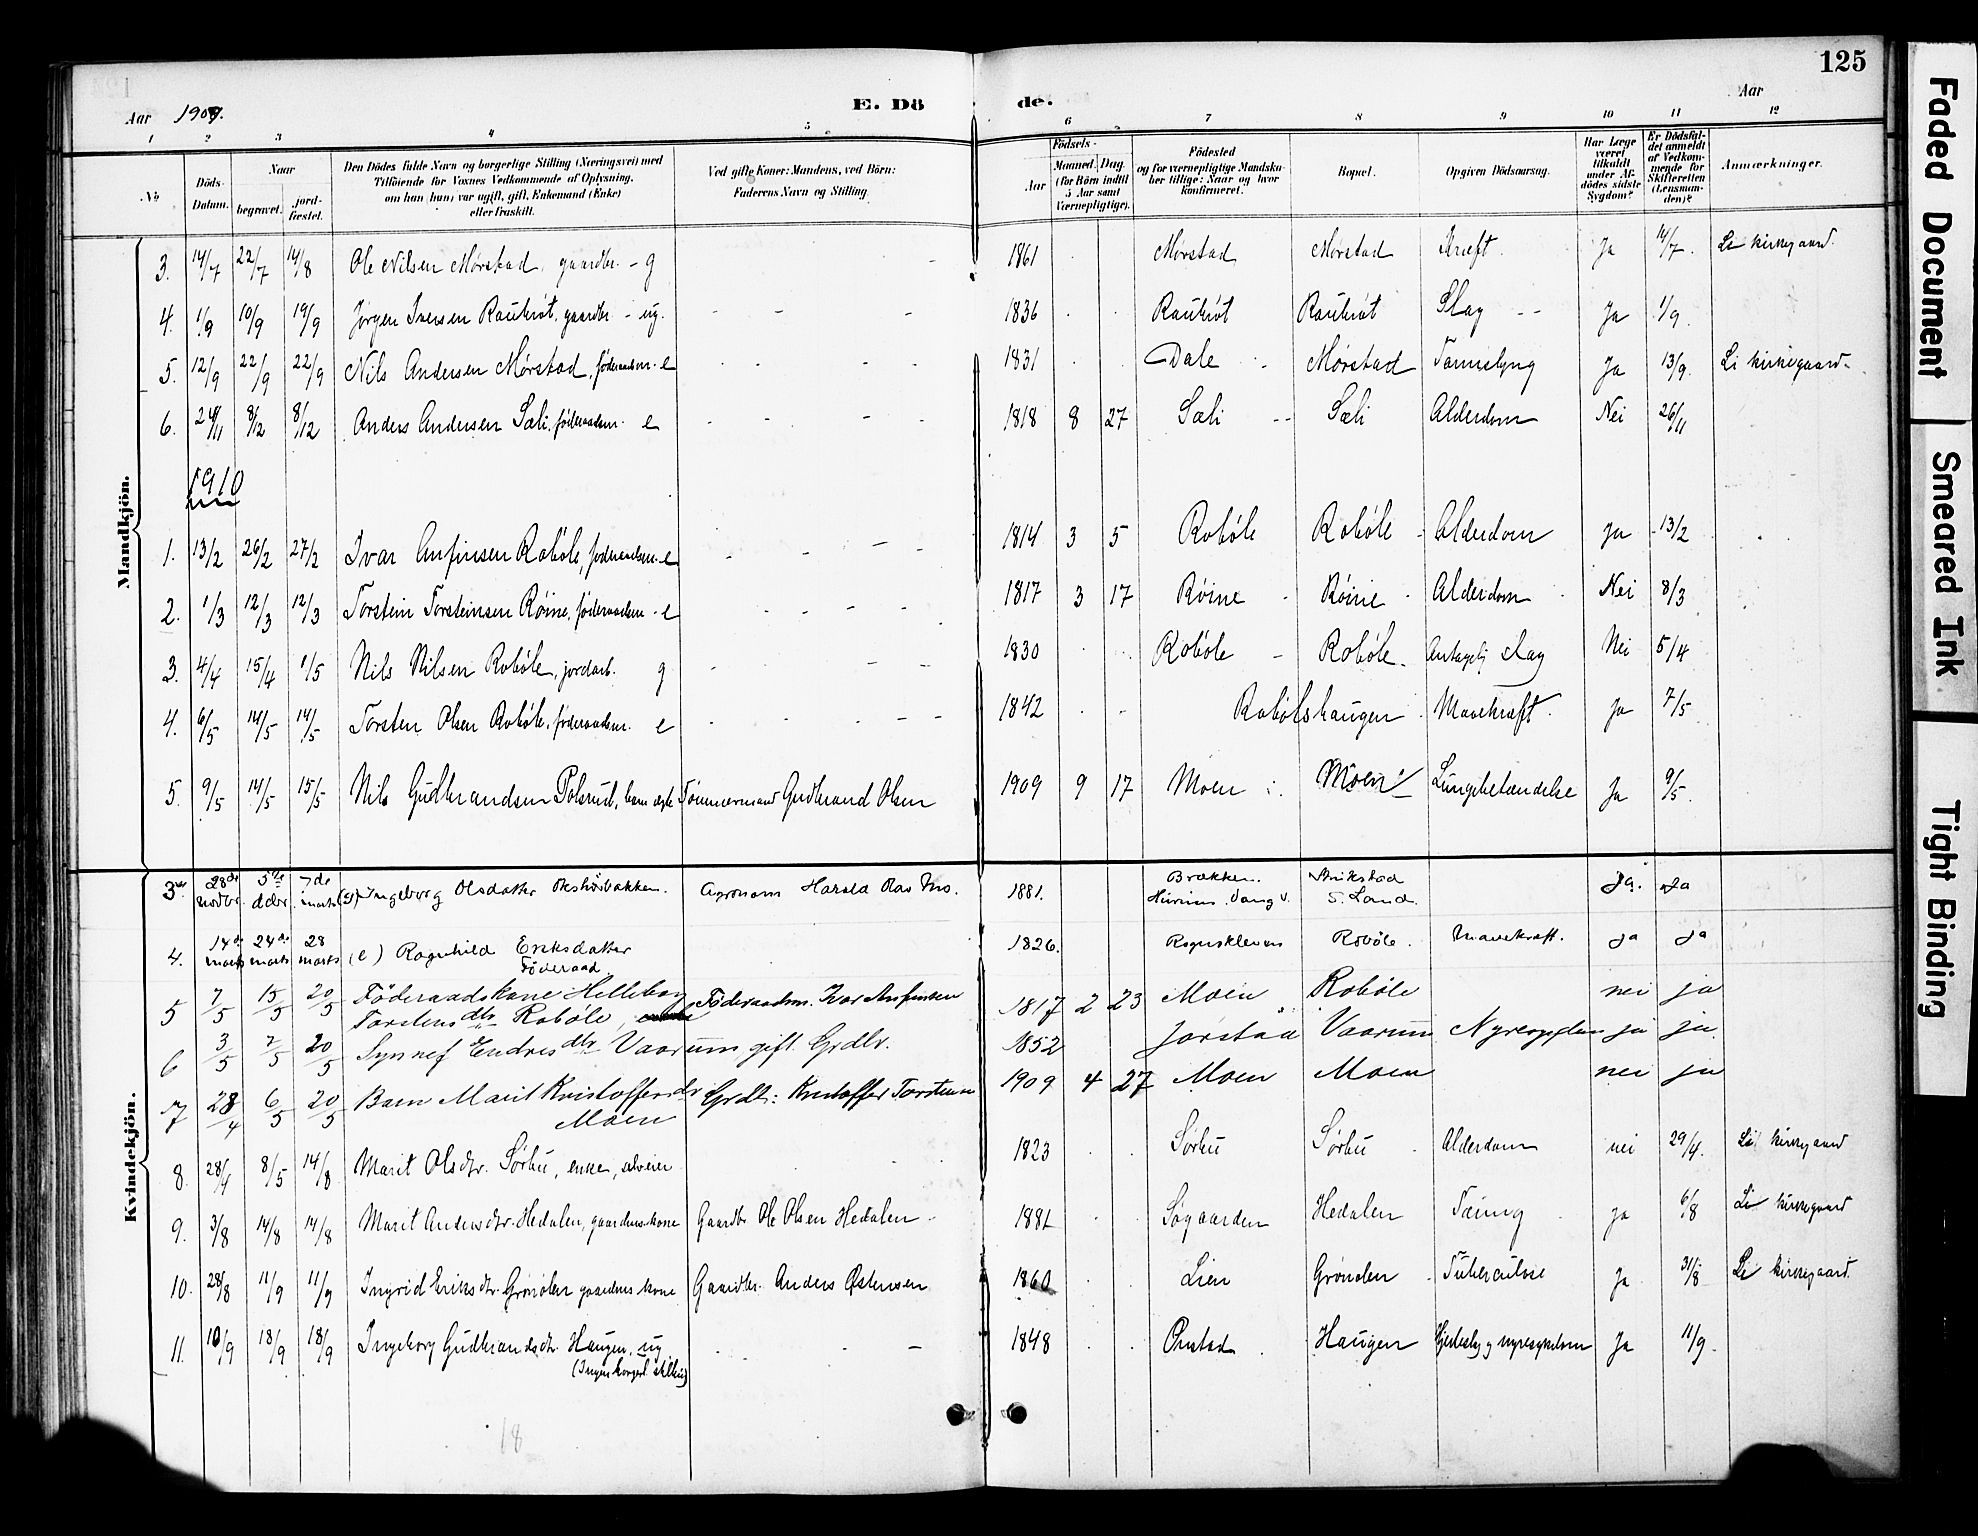 125
Aar 1909.
E. Dö de.
Aar
1 2 3 4 5 6 7 8 9 10 11 12
No
Döds-Datum.
Naar
begravet.
jordfæstet.
Den Dödes fulde Navn og borgerlige Stilling (Næringsvei) med
Tilföiende for Voxnes Vedkommende af Oplysning,
om han (hun) var ugift, gift, Enkemand (Enke)
eller fraskilt.
Ved gifte Koner: Mandens, ved Börn:
Faderens Navn og Stilling
Födsels-
Aar
Maaned. Dag.
(for Börn indtil
5 Aar samt
Værnepligtige).
Födested
og for værnepligtige Mandskaber tillige: Naar og hvor konfirmeret.
Bopæl.
Opgiven Dödsaarsag.
Har Læge været tilkaldt under Afdödes sidste Sygdom?
Er Dödsfaldet anmeldt af Vedkommende for Skifteretten (Lensmanden)?
Anmærkninger.
Mandkjön.
3. 14/7 22/7 14/8 Ole Nilsen Mörstad, gaardbr. - g 1861 Mörstad Mörstad Kræft Ja 14/7. Li kirkegaard.
4. 1/9 10/9 19/9 Jörgen Iversen Raukröt, gaardbr. - ug. 1836 Raukröt Raukröt Slag Ja 1/9.
5. 12/9 22/9 22/9 Nils Andersen Mörstad, föderaadsm. e 1831 Dale Mörstad Tarmslyng Ja 13/9. Li kirkegaard
6. 24/11 8/12 8/12 Anders Andersen Sæli, föderaadsm. e 1818 8 27 Sæli Sæli Alderdom Nei 26/11
1910
1. 13/2 26/2 27/2 Ivar Anfinsen Roböle, föderaadsm. e 1814 3 5 Roböle Roböle Alderdom Ja 13/2
2. 1/3 12/3 12/3 Torstein Torsteinsen Röine, föderaadsm. e 1817 3 17 Röine Röine Alderdom Nei 8/3
3. 4/4 15/4 1/5 Nils Nilsen Roböle, jordarb. g 1830 Roböle Roböle Antagelig slag Nei 5/4
4. 6/5 14/5 14/5 Torsten Olsen Roböle, föderaadsm. e 1842 Robölshaugen Mavekræft Ja 7/5
5. 9/5 14/5 15/5 Nils Gudbrandsen Polsrud, barn ægte Tömmermand Gudbrand Olsen 1909 9 17 Moen Moen Lungebetændelse Ja 9/5.
Kvindekjön.
3. 28de novbr. 5te decbr. 7de marts (g) Ingeborg Olsdatter Agronom Harald 1881. Brækken. Vang V. S. Land. Ja. Ja
4. 14de marts 24de marts 28 marts (e) Ragnhild Eriksdatter Föderaad. 1826. Rogneklevens Roböle. Mavekræft. Ja Ja
5 7/5 15/5 20/5 Föderaadskone Helleborg Torstensdtr. Roböle, Föderaadsm. Ivar Anfinsen 1817 2 23 Moen Roböle nei ja
6 3/5 7/5 20/5 Synnef Endresdtr. Vaarum, gift. Grdbr. 1852 Jorstad Vaarum ja ja.
7 28/4 6/5 20/5 Barn Marit Kristoffersdr Moen Grdb: Kristoffer Torstensen 1909 4 27 Moen Moen nei ja
8. 28/4 8/5 14/8 Marit Olsdtr. Sörbu, enke, selveier 1823 Sörbu Sörbu Alderdom nei 29/4. Li kirkegaard
9. 3/8 14/8 14/8 Marit Andersdtr. Hedalen, gaardmskone Gaardbr. Ole Olsen Hedalen 1881 Søgaarden Hedalen Tæring Ja 6/8 Li kirkegaard
10. 28/8 11/9 11/9 Ingrid Eriksdtr. Grönolen gaardmskone Gaardbr. Anders Östensen 1860 Lien Grönolen Tuberculose Ja 31/8 Li kirkegaard
11. 10/9 18/9 18/9 Ingeborg Gudbrandsdtr. Haugen, ug (Ingen borgerl. stilling) 1848 Onstad Haugen Hjerteslag og nyresygdom Ja 11/9.
18
Faded Document
Smeared Ink
Tight Binding